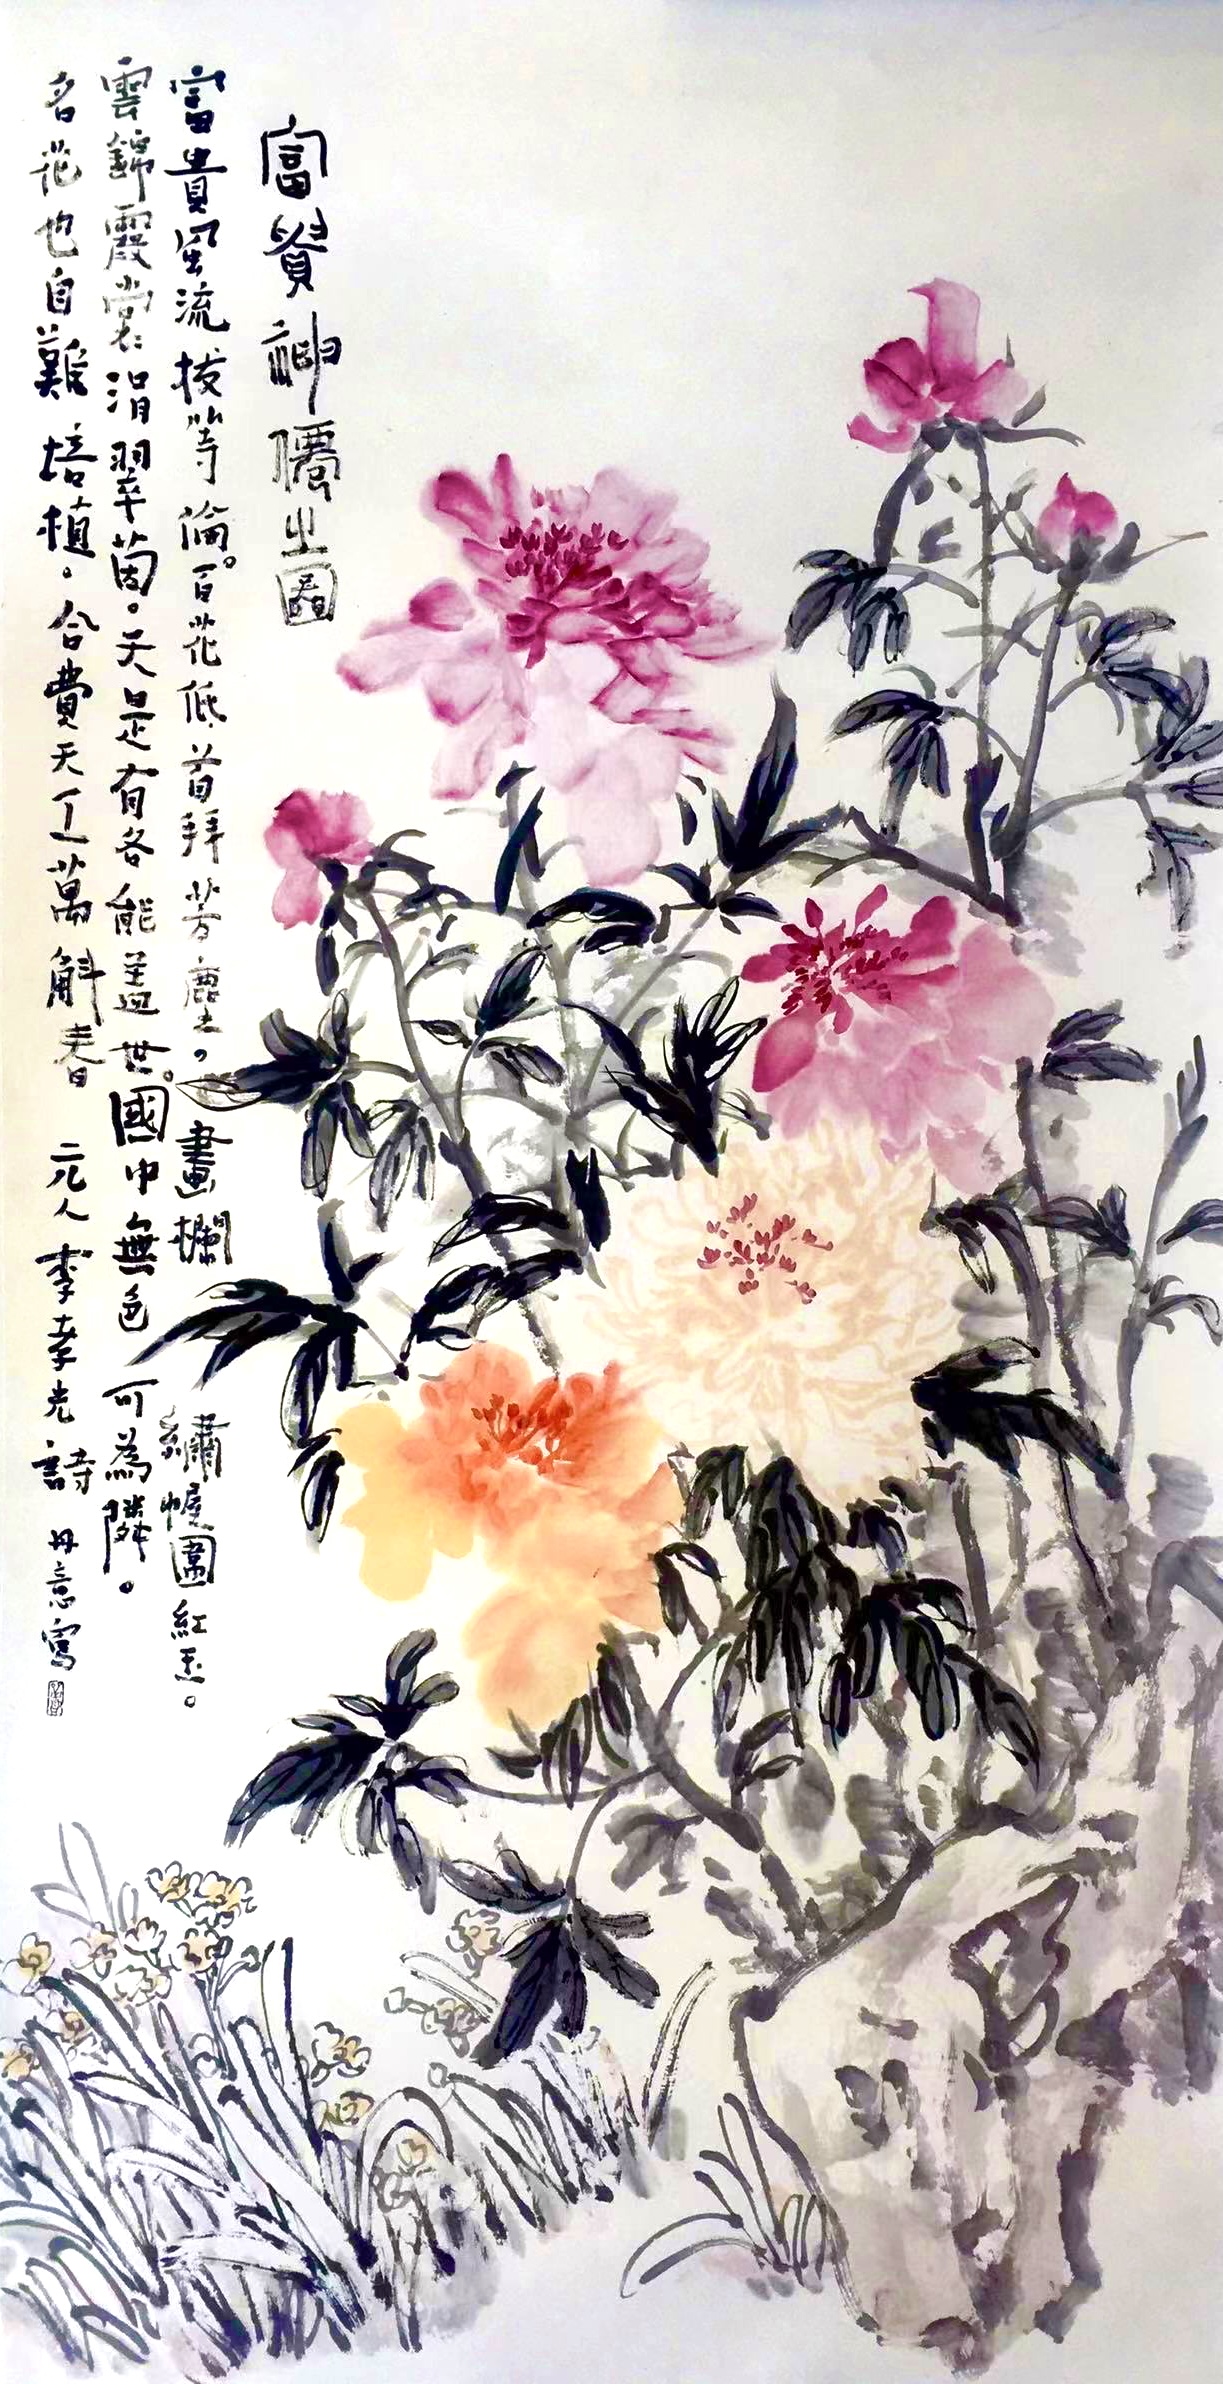 富貴神僊之圖
富貴風流拔等倫。百花低首拜芳塵，畫欄繡幄圍紅玉。
雲錦霞裳涓翠茵。天是有各能盖世。國中無色可為隣。
名花也自難培植，合費天工萬斛春 元人李孝光詩 丹意寫